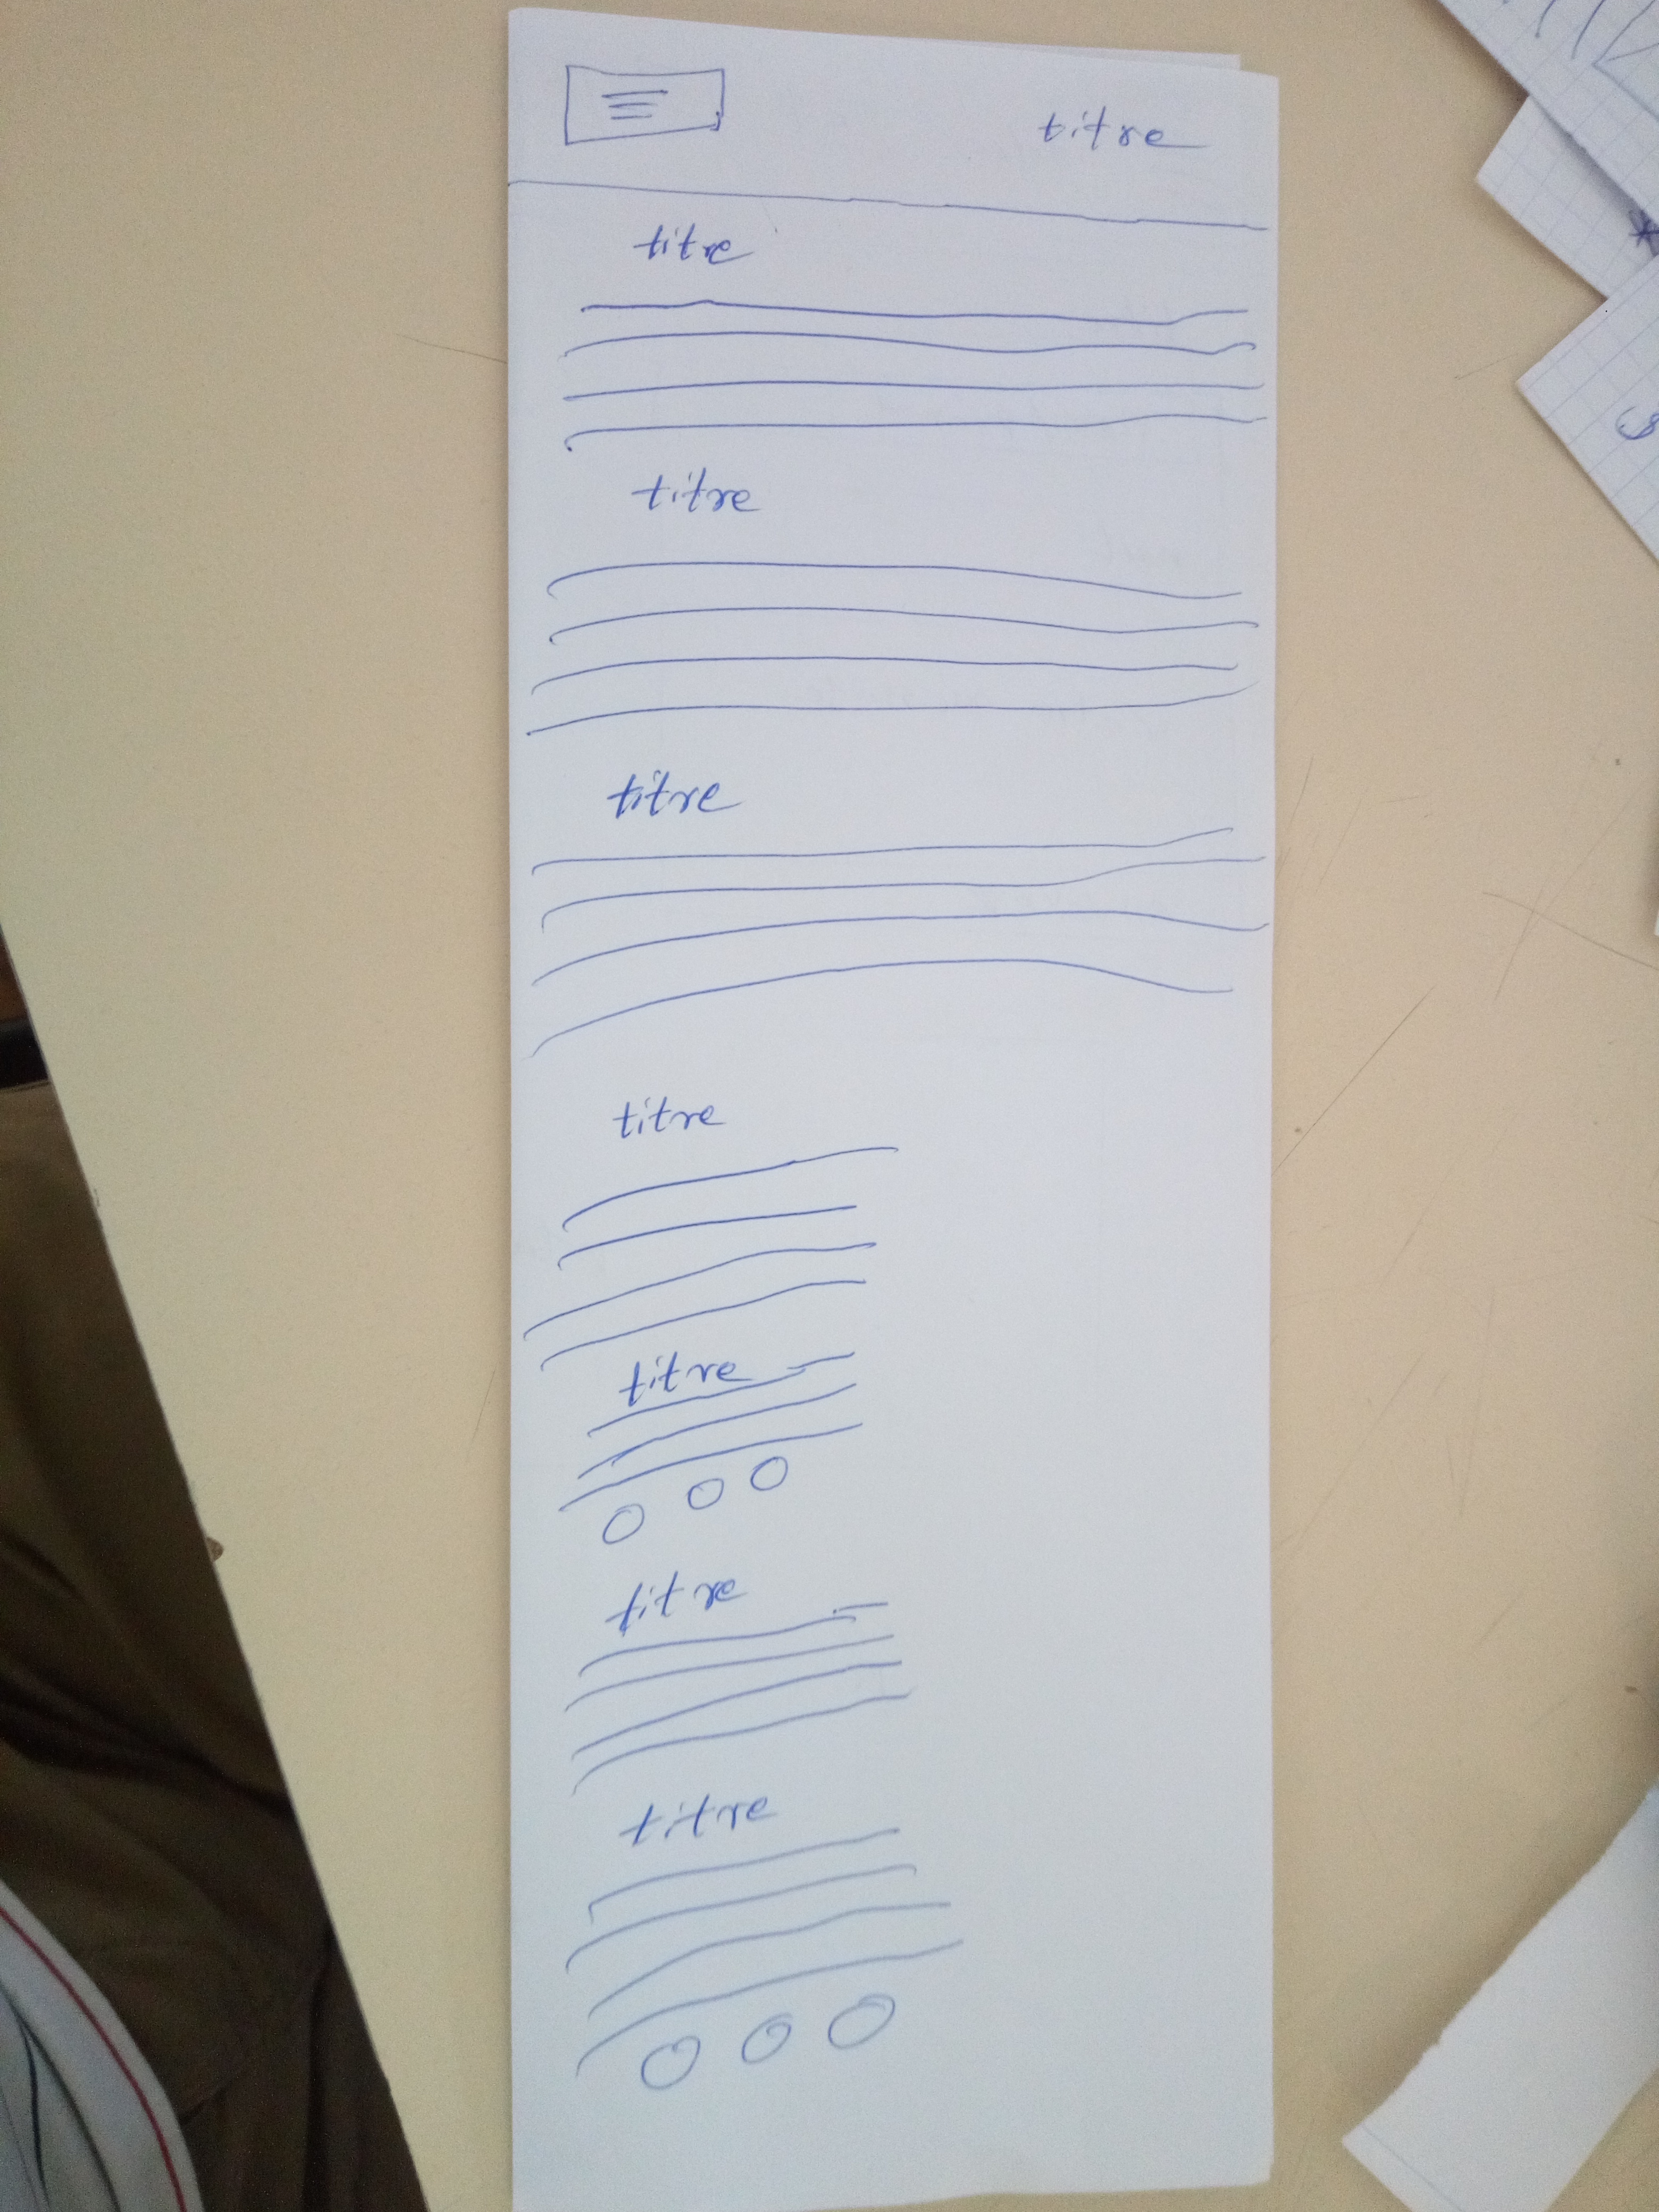 titre
titre
titre
titre
titre
titre
titre
titre